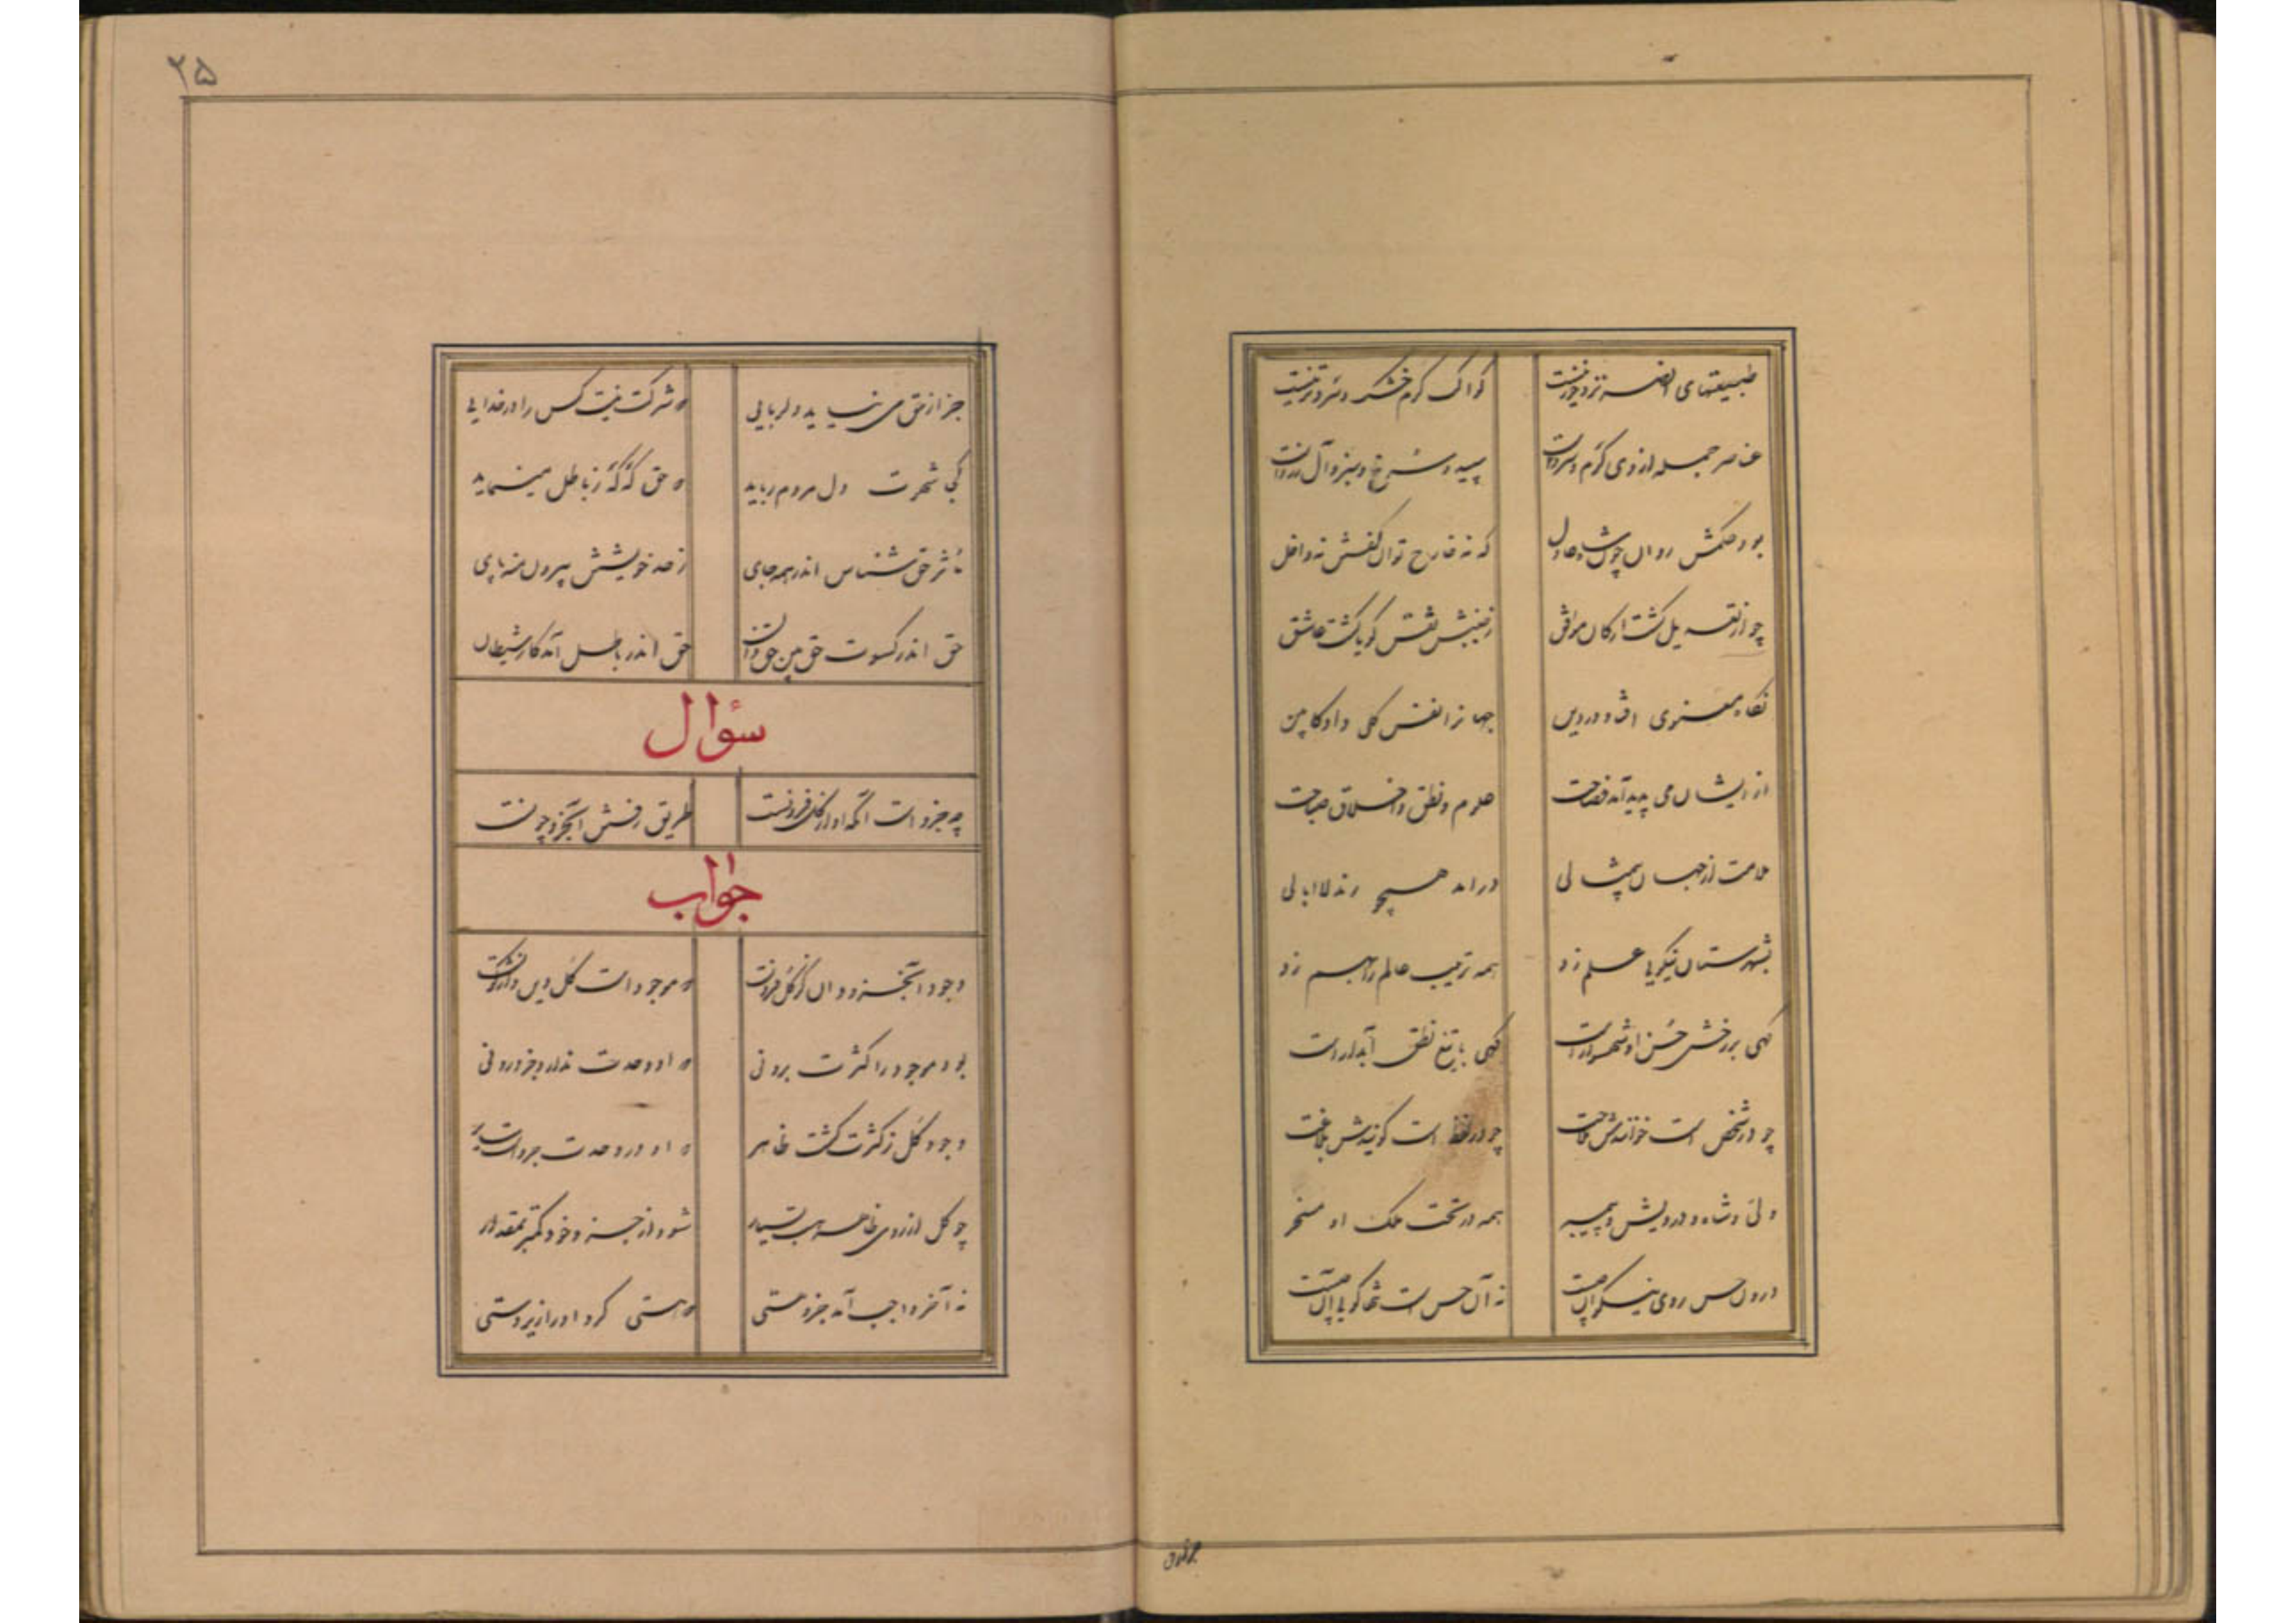 طبیعتهای عنصر نزد خور نیست
کواکب گرم و خشک و سرد و تر نیست
عناصر جمله از وی گرم و سرد است
سپید و سرخ و سبز و آل و زرد است
بود حکمش روان چون شاه عادل
که نه خارج توان گفتش نه داخل
چو از تعدیل گشت ارکان موافق
ز حسنش نفس گویا گشت عاشق
نکاح معنوی افتاد در دین
جهانرا نفس کلی داد کابین
از ایشان می پدید آمد فصاحت
علوم و نطق و اخلاق و صباحت
ملاحت از جهان بیمثالی
درآمد همچو رند لاابالی
بشهرستان نیکویی علم زد
همه ترتیب عالم را بهم زد
گهی بر رخش حسن او شهسوار است
گهی با تیغ نطق آبدار است
چو در شخص است خوانندش ملاحت
چو در لفظ است گویندش بلاغت
ولی و شاه و درویش و پیمبر
همه در تحت حکم او مسخر
درون حسن روی نیکوان چیست
نه آن حسن است تنها گویی آن چیست
جز از حق
۲۵
جز از حق می نیاید دلربایی
که شرکت نیست کس را در خدایی
کجا شهوت دل مردم رباید
که حق گه گه ز باطل مینماید
مؤثر حق شناس اندر همه جای
ز حد خویشتن بیرون منه پای
حق اندر کسوت حق بین و حق دان
حق اندر باطل آمد کار شیطان
سؤال
چه جزو است آنکه او از کل فزونست
طریق رفتن آن جزو چونست
جواب
وجود آن جزو دان کز کل فزونست
که موجود است کل وین واژگونست
بود موجود را کثرت برونی
که او وحدت ندارد جز درونی
وجود کل ز کثرت گشت ظاهر
که او در وحدت جزو است سایر
چو کل از روی ظاهر هست بسیار
شود از جزو خود کمتر بمقدار
نه آخر واجب آمد جزو هستی
که هستی کرد او را زیردستی